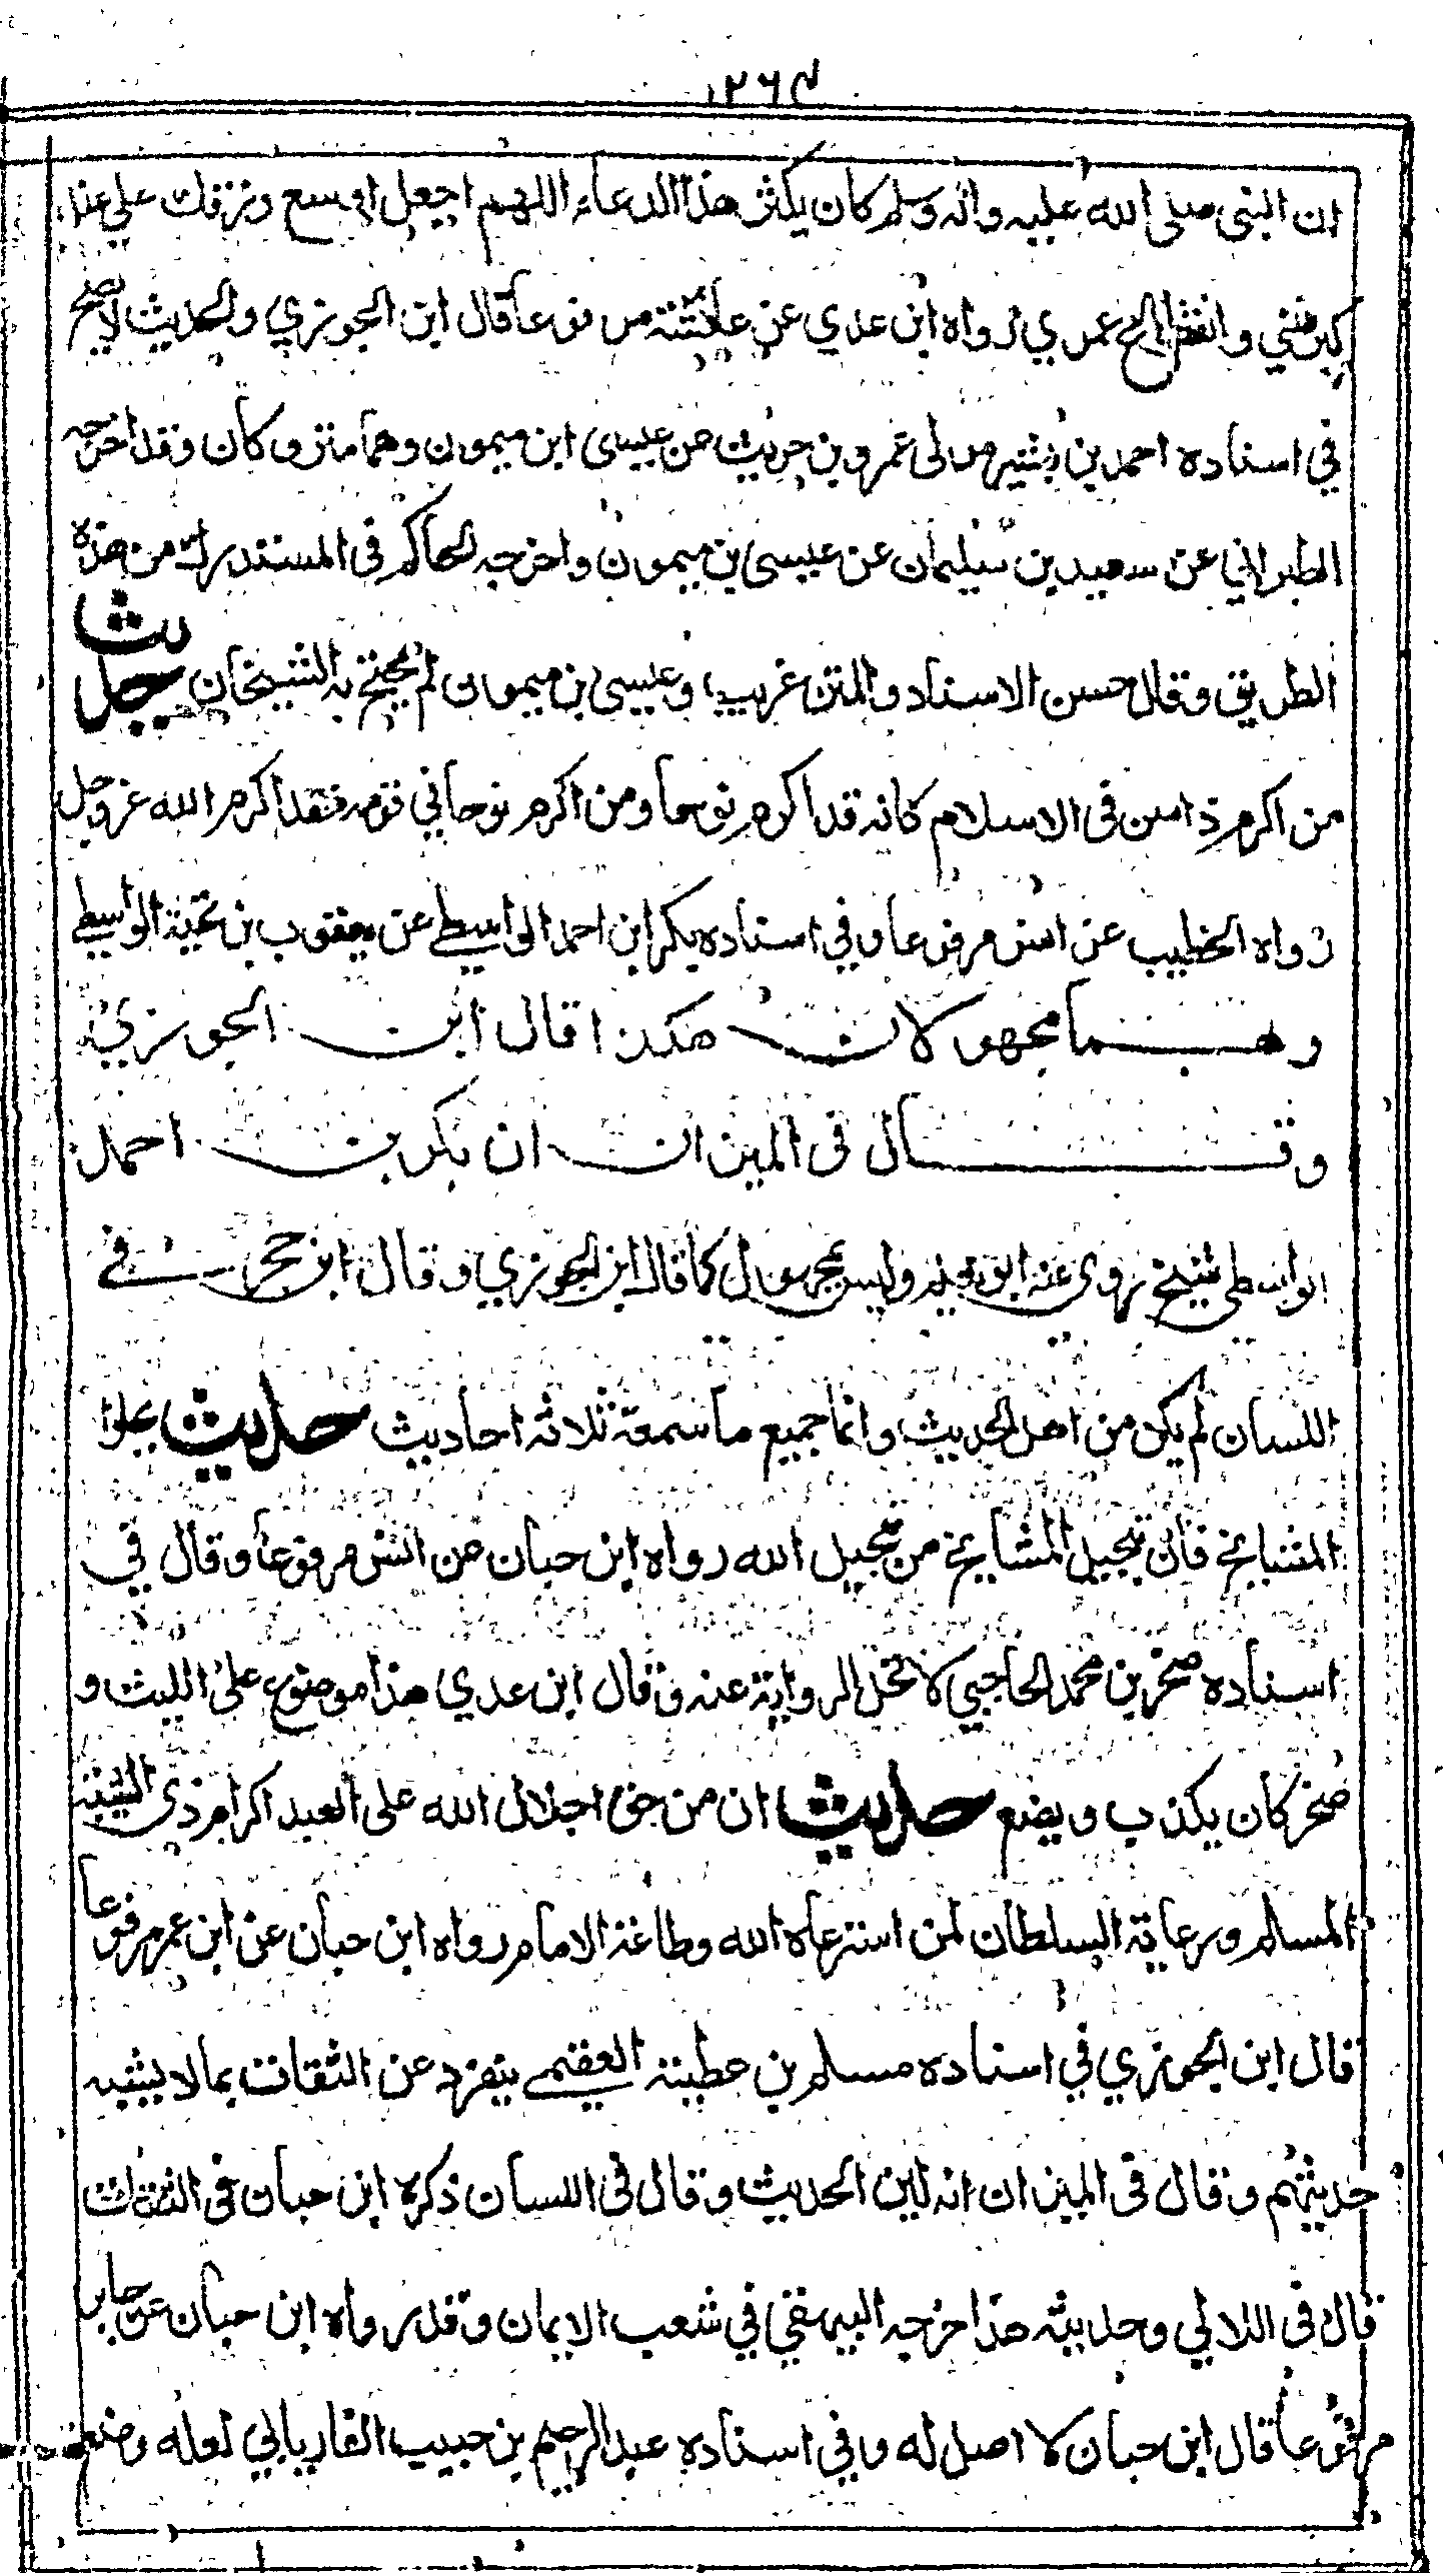 ١٢٦٤
ان النبى صلى الله عليه واله وسلم كان يكثر هذا الدعاء اللهم اجعل اوسع رزقك علي عند
كبر سني وانقضاء عمري رواه ابن عدي عن عائشة مرفوعا قال ابن الجوزي والحديث لا يصح
في اسناده احمد بن بشير مولى عمرو بن حريث عن عيسى ابن ميمون وهما متروكان وقد اخرجه
الطبراني عن سعيد بن سليمان عن عيسى بن ميمون واخرجه الحاكم فى المستدرك من هذه
الطريق وقال حسن الاسناد والمتن غريب وعيسى بن ميمون لم يحتج به الشيخان حديث
من اكرم ذا سن فى الاسلام كانه قد اكرم نوحا ومن اكرم نوحا في قومه فقد اكرم الله عز وجل
رواه الخطيب عن انس مرفوعا وفي اسناده بكر ابن احمد الواسطے عن يعقوب بن تحية الواسطے
وهما مجهولان هكذا قال ابن الجوزي
وقال فى الميزان ان بكر بن احمد
الواسطى شيخ روى عنه ابو نعيم وليس بمجهول كما قال ابن الجوزي وقال ابن حجر فے
اللسان لم يكن من اهل الحديث وانما جميع ما سمعه ثلاثه احاديث حديث بجلوا
المشايخ فان تبجيل المشايخ من تبجيل الله رواه ابن حبان عن انس مرفوعا وقال في
اسناده صخر بن محمد الحاجبي لا تحل الرواية عنه وقال ابن عدي هذا موضوع على الليث و
صخر كان يكذب ويضع حديث ان من حق اجلال الله على العبد اكرام ذى الشيبة
المسلم ورعاية السلطان لمن استرعاه الله وطاعة الامام رواه ابن حبان عن ابن عمر مرفوعا
قال ابن الجوزي في اسناده مسلم بن عطية الفقيمے يتفرد عن الثقات بما لا يشبه
حديثهم وقال فى الميزان انه لين الحديث وقال فى اللسان ذكره ابن حبان فى الثقات
قال فى اللالي وحديثه هذا اخرجه البيهقي في شعب الايمان وقد رواه ابن حبان عن جابر
مرفوعا قال ابن حبان لا اصل له وفي اسناده عبد الرحيم بن حبيب الفاريابي لعله وضعه